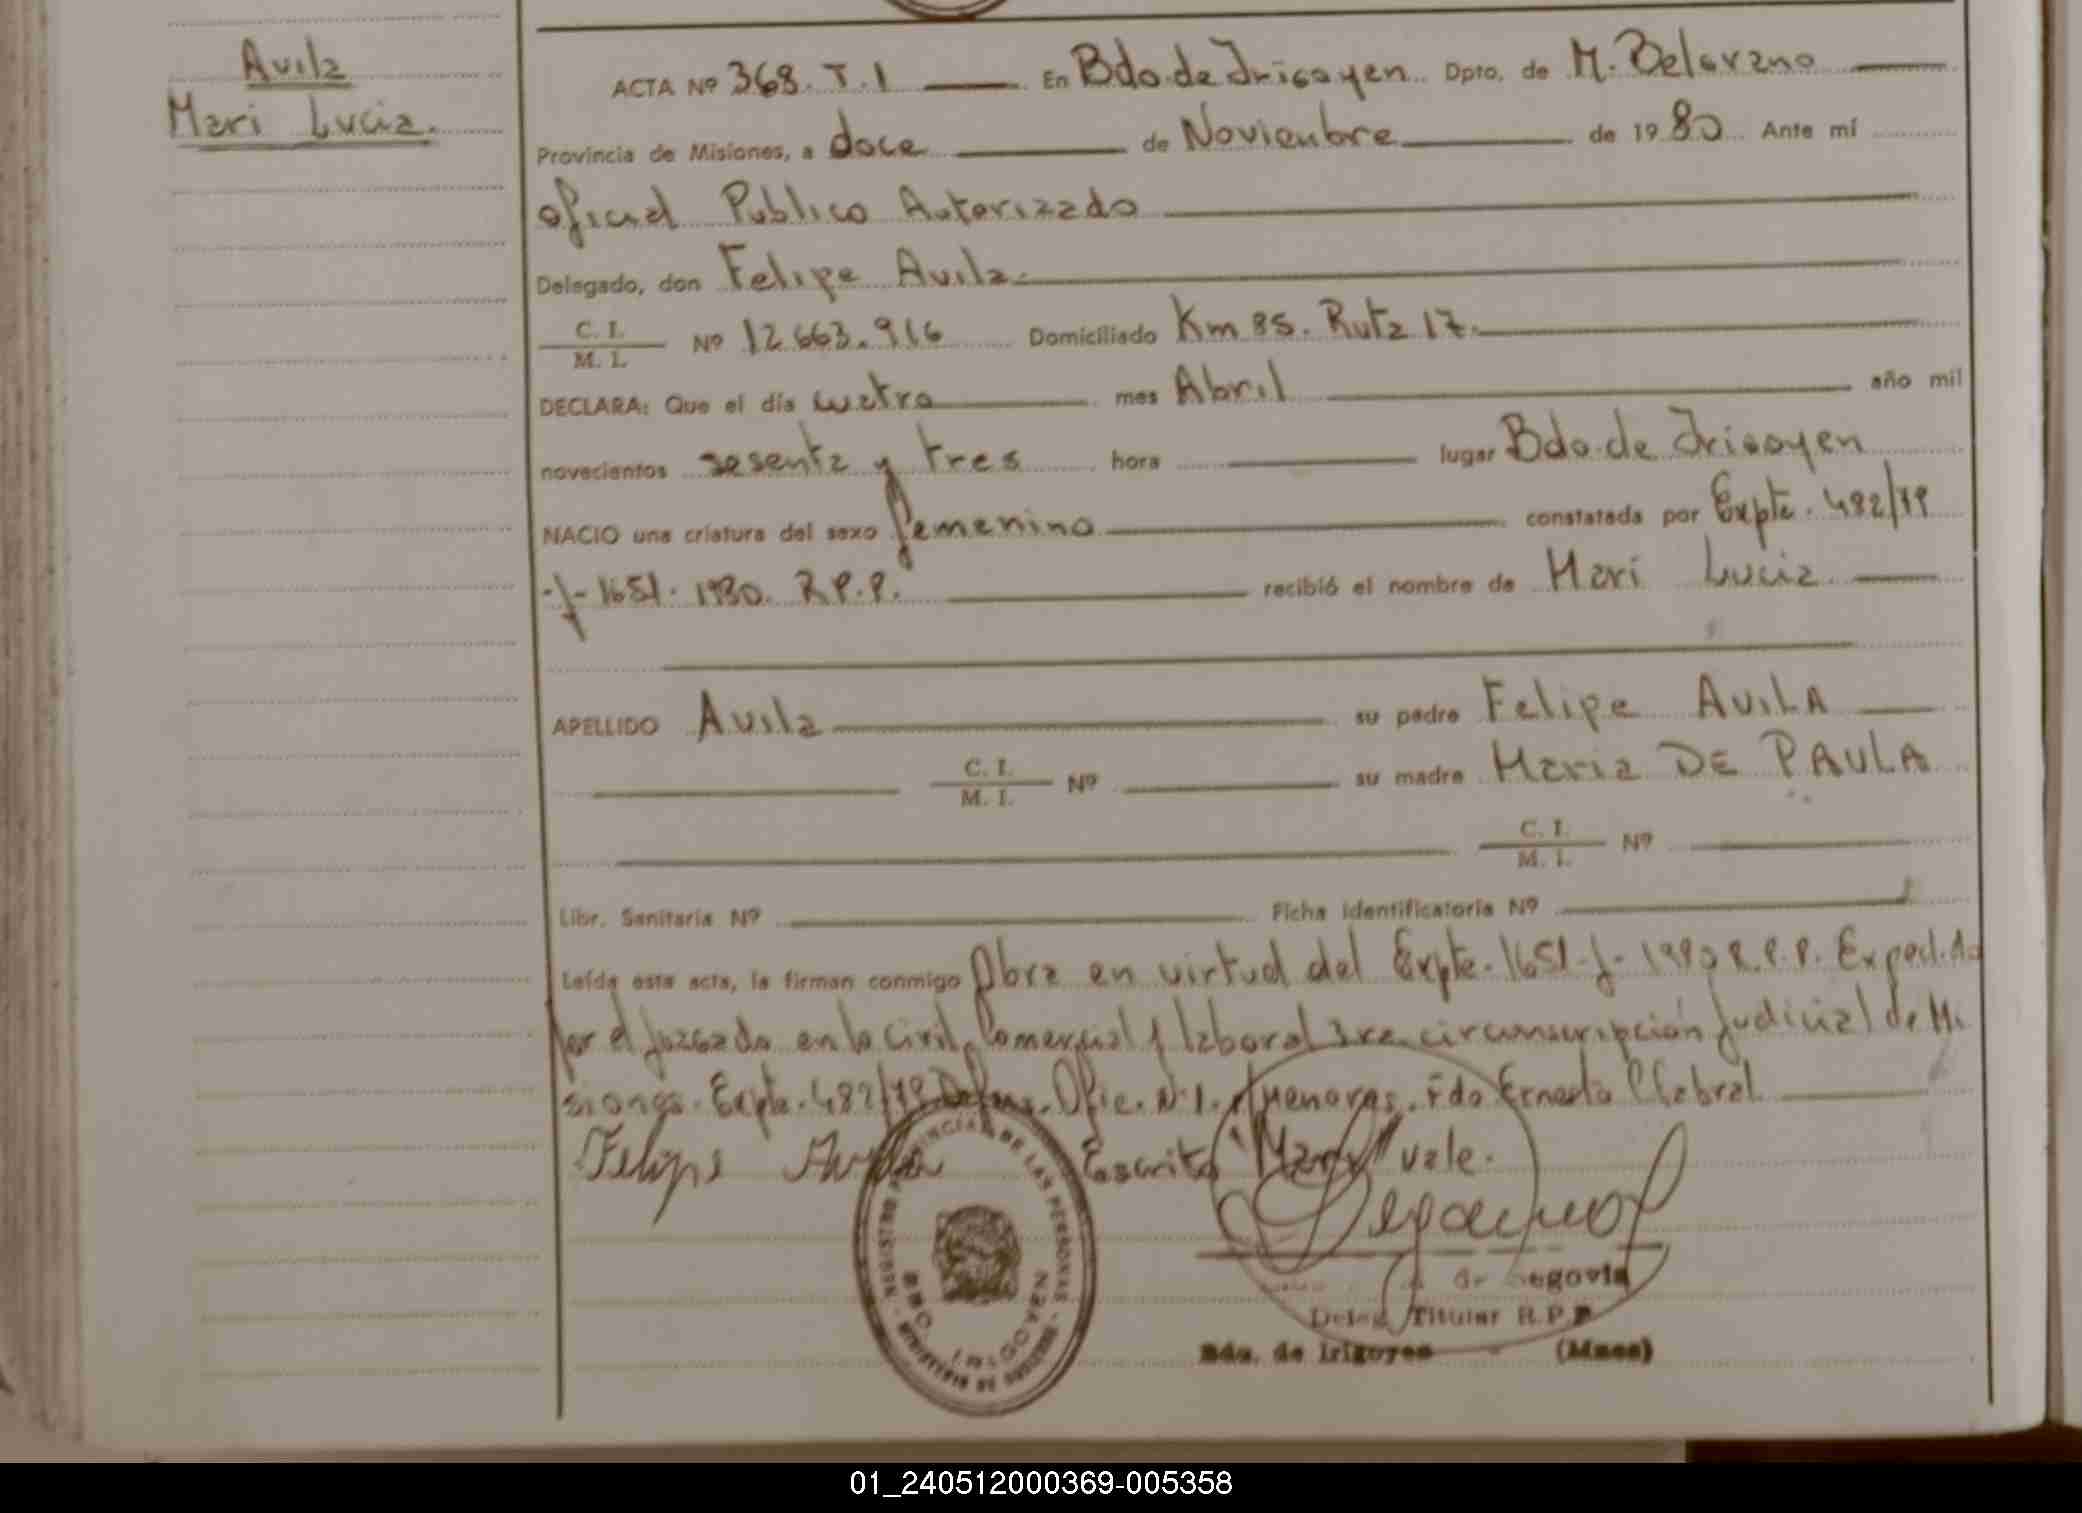 Avila
Mari Lucia.
ACTA Nº 368. T. 1 En Bdo. de Irigoyen Dpto. de M. Belgrano
Provincia de Misiones, a doce de Noviembre de 1980 Ante mí
oficial Publico Autorizado
Delegado, don Felipe Avila
C. I.
M. I. Nº 12.663.916 Domiciliado Km 85. Ruta 17.
DECLARA: Que el día cuatro mes Abril año mil
novecientos sesenta y tres hora lugar Bdo. de Irigoyen
NACIO una criatura del sexo femenino constatada por Expte. 482/79
-J- 1651. 1980. R.P.P. recibió el nombre de Mari Lucia
APELLIDO Avila su padre Felipe AVILA
C. I.
M. I. Nº su madre Maria DE PAULA
C. I.
M. I. Nº
Libr. Sanitaria Nº Ficha identificatoria Nº
Leída esta acta, la firman conmigo Obra en virtud del Expte. 1651-J-1980 R.P.P. Expedido
por el Juzgado en lo Civil, Comercial y laboral 3ra circunscripción Judicial de Mi
siones. Expte. 482/79 Ofic. Nº 1. Fdo Ernesto Cabral
Felipe Avila Escrito vale.
REGISTRO PROVINCIAL DE LAS PERSONAS
BDO. IRIGOYEN
de Segovia
Deleg. Titular R.P.P
Bdo. de Irigoyen (Mnes)
01_240512000369-005358